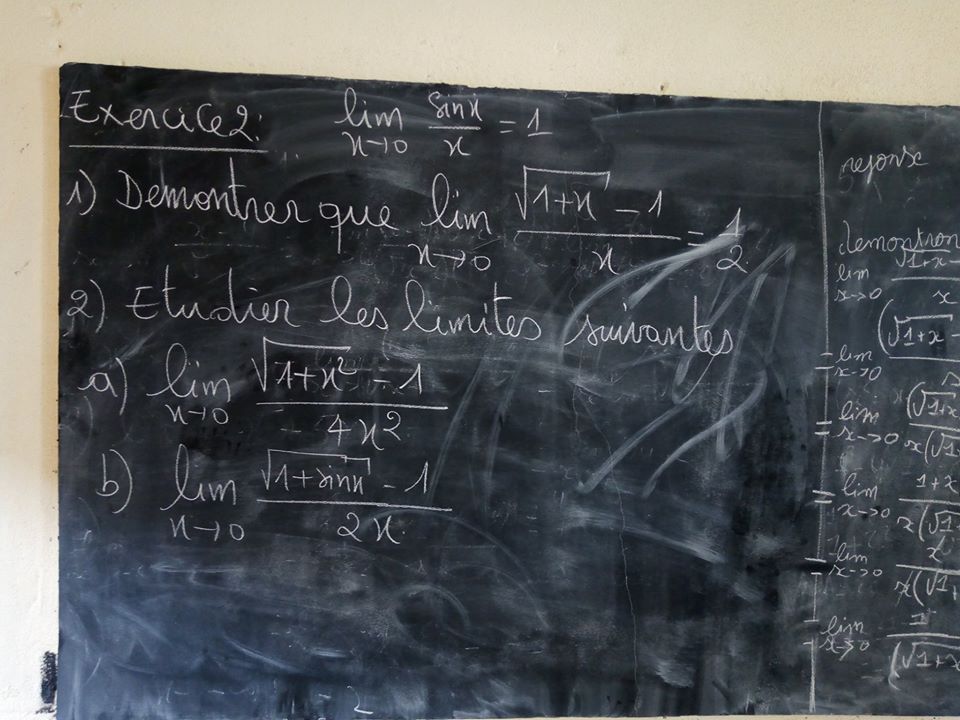 Exercice 2: lim x→0 sinx/x = 1
1) Demontrer que lim x→0 (√(1+x) - 1)/x = 1/2
2) Etudier les limites suivantes
a) lim x→0 (√(1+x²) - 1)/(4x²)
b) lim x→0 (√(1+sinx) - 1)/(2x)
2
reponse
demontron
lim x→0 √1+x - / x
= lim x→0 (√1+x -
= lim x→0 (√1+x / x(√1
= lim x→0 1+x / x(√1
= lim x→0 x / x(√1
= lim x→0 1 / (√1+x